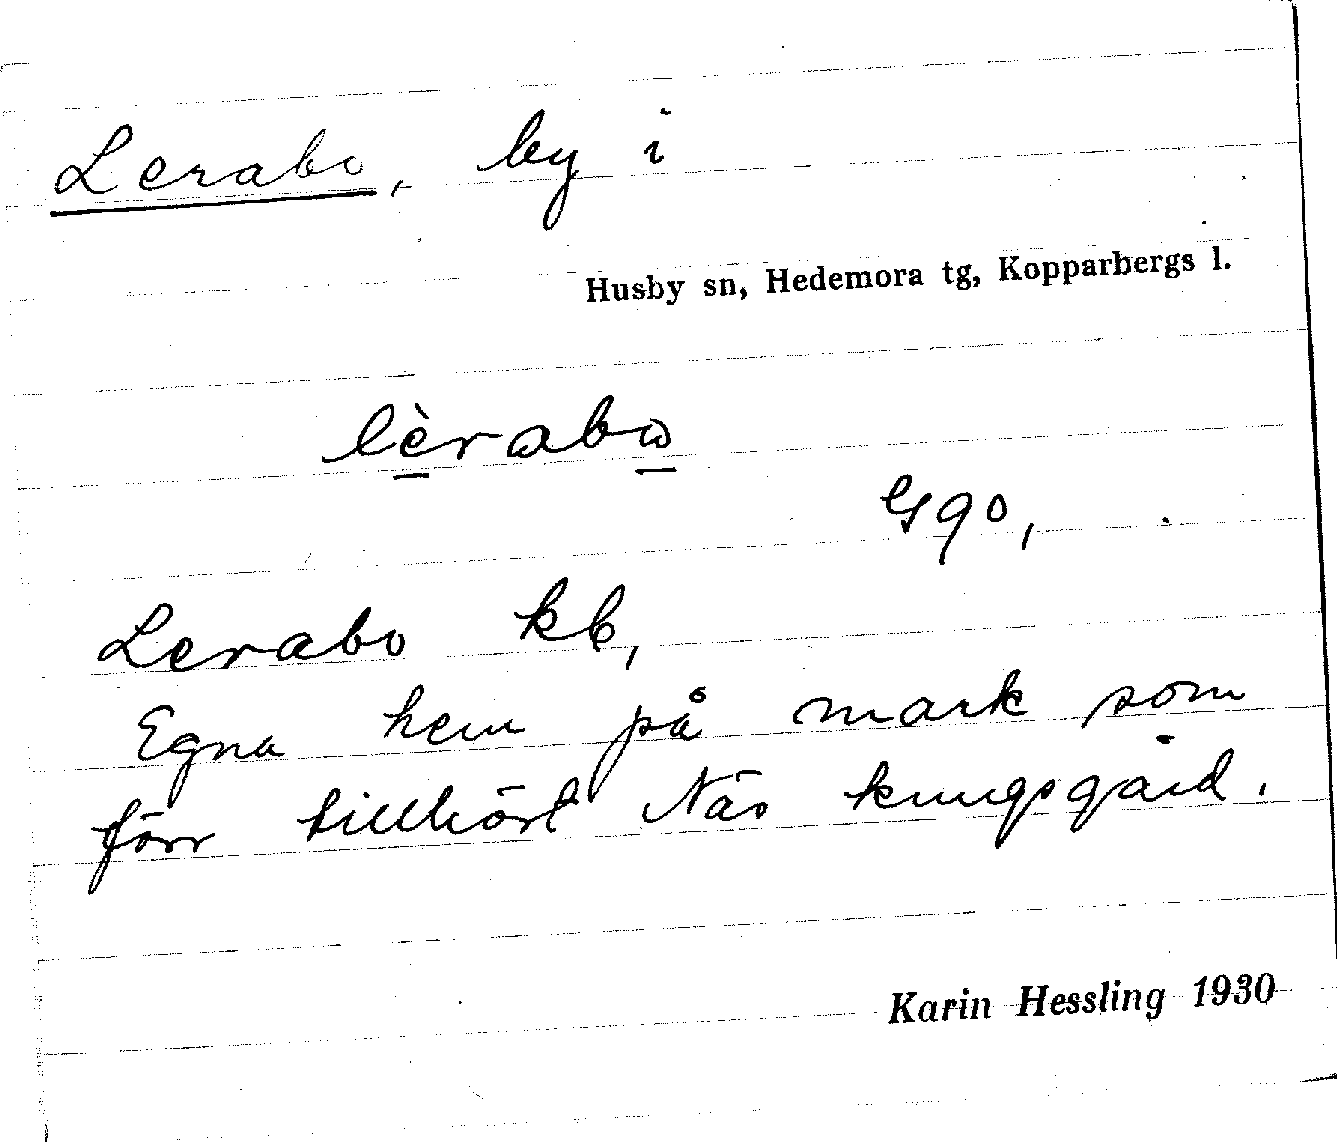 Lerabo, by i
Husby sn, Hedemora tg, Kopparbergs l.
lèrabω
G90,
Lerabo kb,
Egna hem på mark som
förr tillhört Näs kungsgård.
Karin Hessling 1930